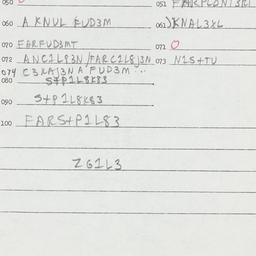 050
051 FARCPLONT3RI
060 A KNUL FUD3M 061 )KNAL3XL
070 FARFUD3MT 071 O
072 ANC1L83N/FARC1L8J3N 073 N1S+TU
074 C3NAJ3NA FUD3M...
080 S+P1L8K83
090 S+P1L8K83
100 FARS+P1L83
Z61L3